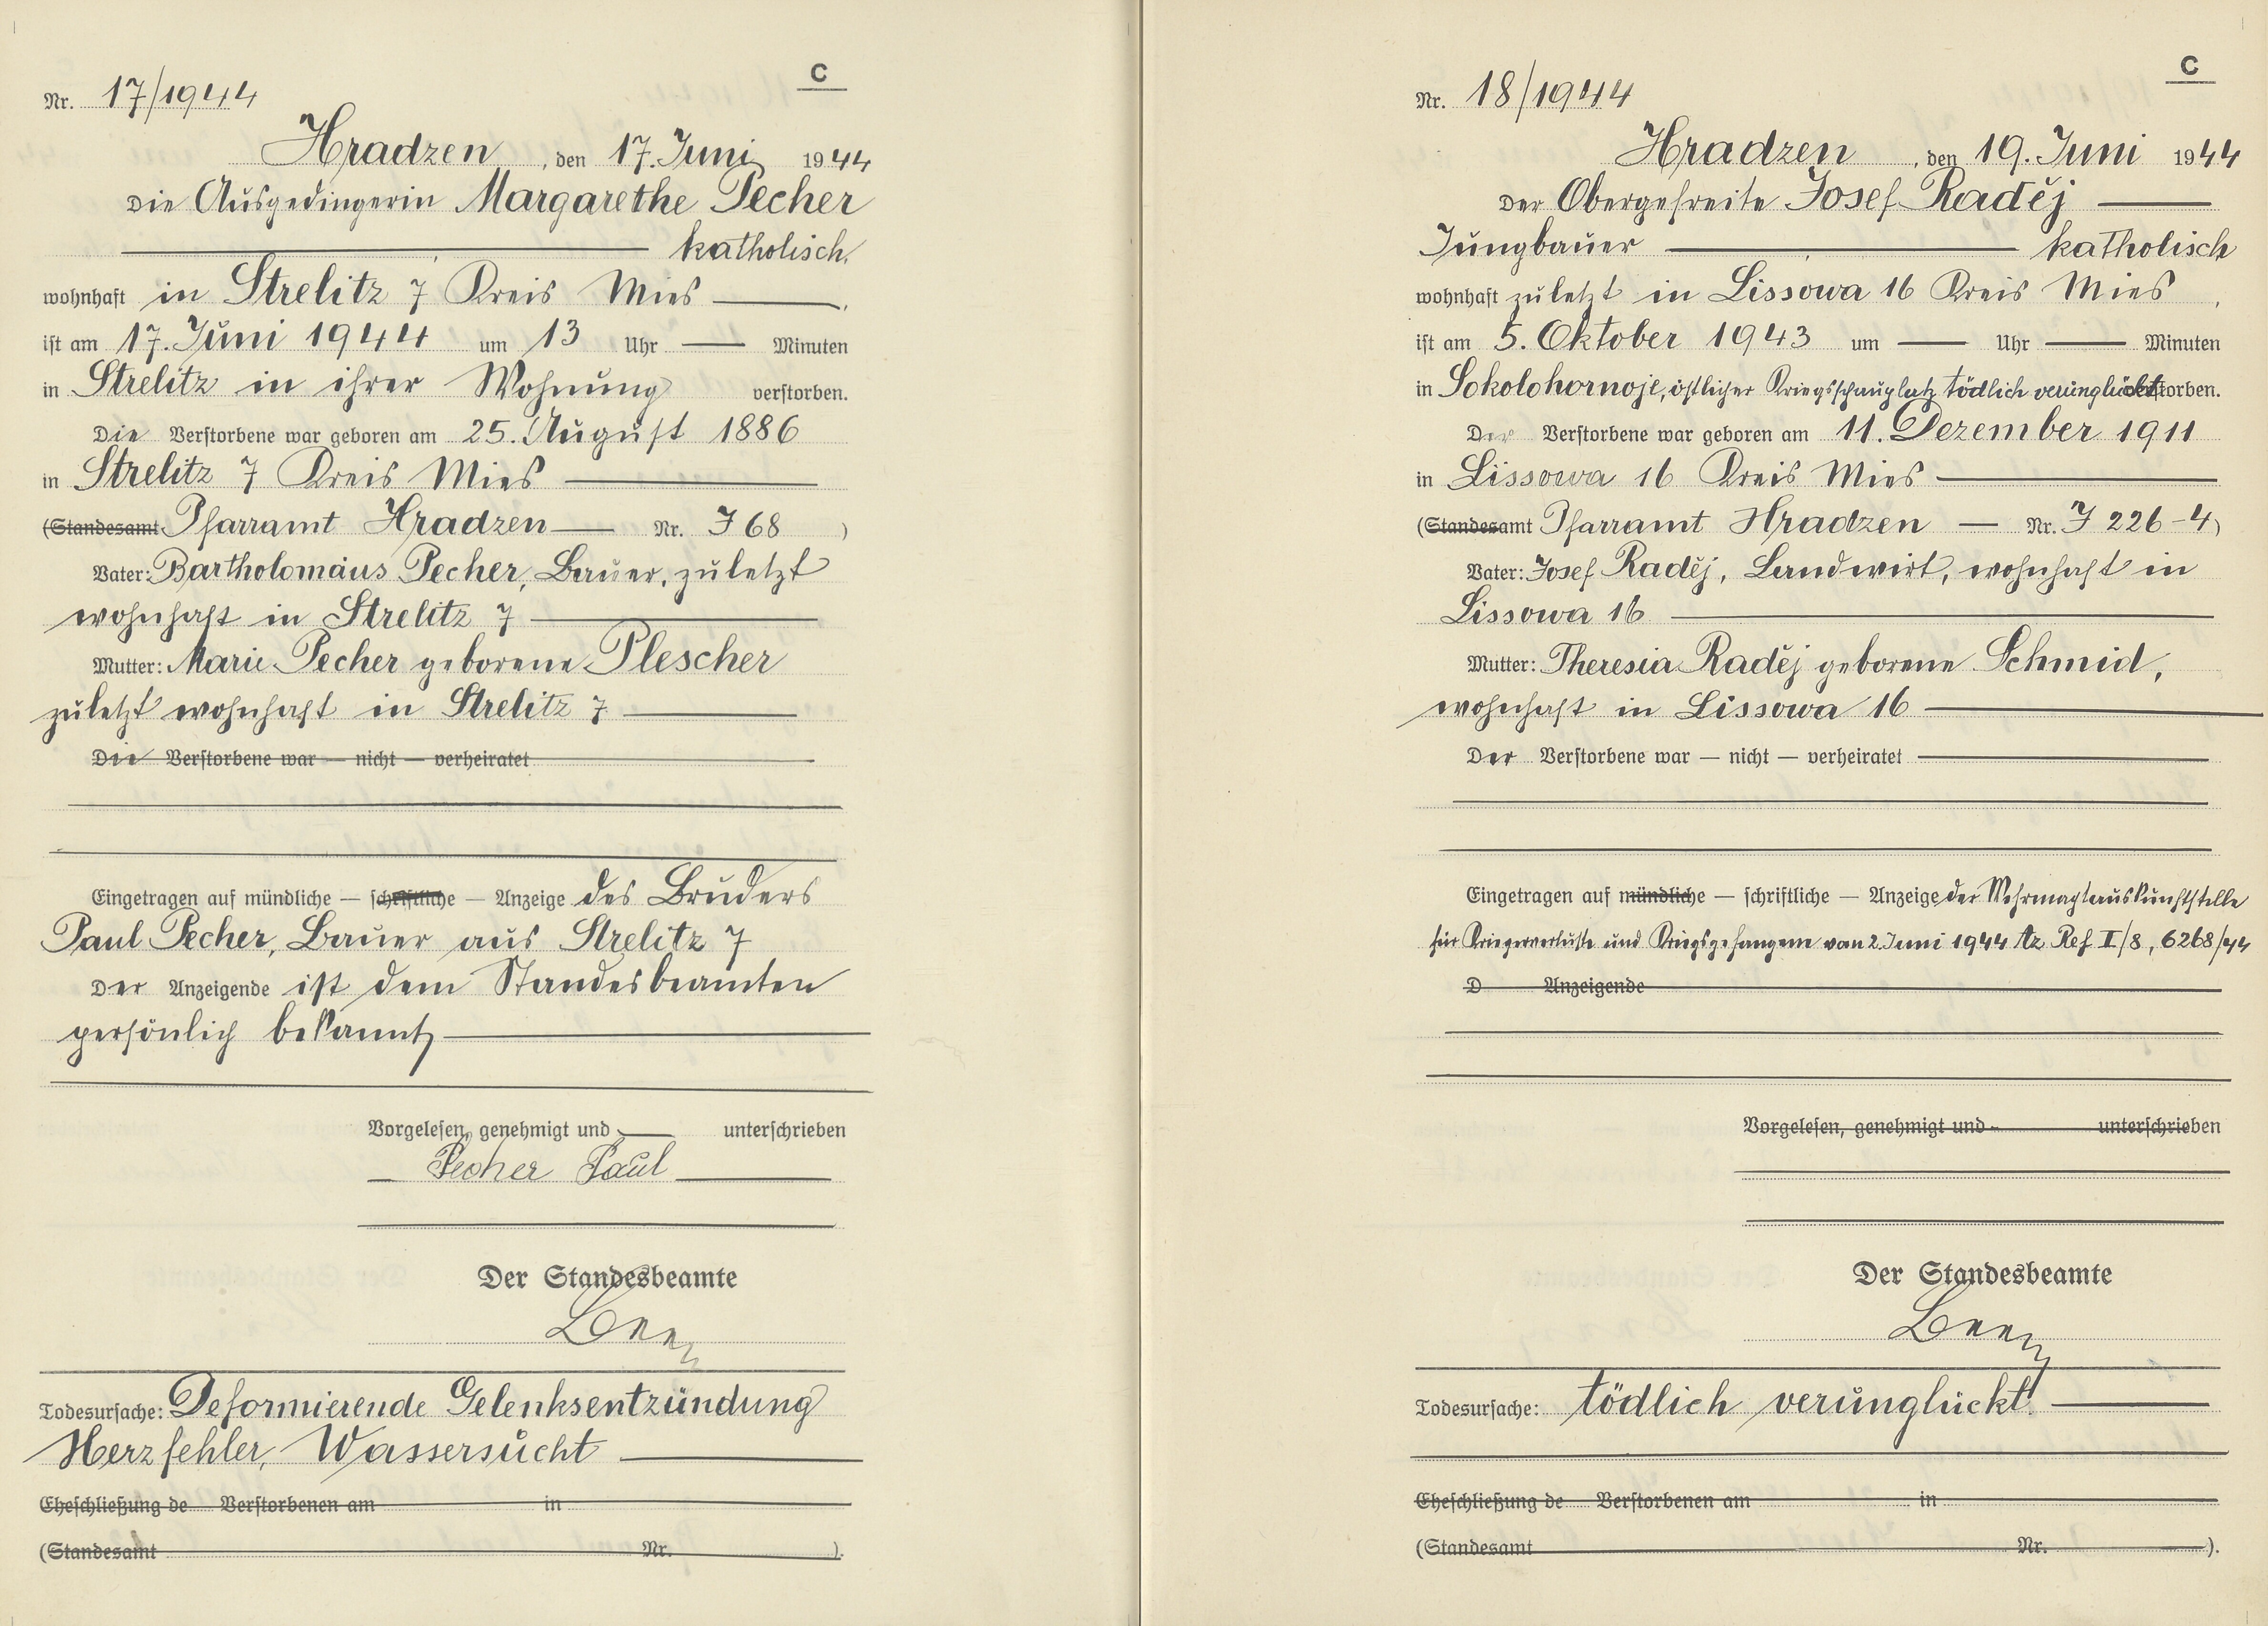 C
Nr. 17/1944
Hradzen, den 17. Juni 1944
Die Ausgedingerin Margarethe Pecher
katholisch,
wohnhaft in Strelitz 7 Kreis Mies,
ist am 17. Juni 1944 um 13 Uhr — Minuten
in Strelitz in ihrer Wohnung verstorben.
Die Verstorbene war geboren am 25. August 1886
in Strelitz 7 Kreis Mies
(Standesamt Pfarramt Hradzen — Nr. J 68)
Vater: Bartholomäus Pecher, Bauer, zuletzt
wohnhaft in Strelitz 7
Mutter: Marie Pecher geborene Plescher
zuletzt wohnhaft in Strelitz 7
Die Verstorbene war — nicht — verheiratet
Eingetragen auf mündliche — schriftliche — Anzeige des Bruders
Paul Pecher, Bauer aus Strelitz 7
Der Anzeigende ist dem Standesbeamten
persönlich bekannt
Vorgelesen, genehmigt und — unterschrieben
Pecher Paul
Der Standesbeamte
Todesursache: Deformierende Gelenksentzündung
Herzfehler, Wassersucht
Eheschließung de Verstorbenen am in
(Standesamt Nr. ).
C
Nr. 18/1944
Hradzen, den 19. Juni 1944
Der Obergefreite Josef Raděj
Jungbauer — katholisch
wohnhaft zuletzt in Lissowa 16 Kreis Mies,
ist am 5. Oktober 1943 um — Uhr — Minuten
in Sokolohornoje, östlicher Kriegsschauplatz tödlich verunglückt verstorben.
Der Verstorbene war geboren am 11. Dezember 1911
in Lissowa 16 Kreis Mies
(Standesamt Pfarramt Hradzen — Nr. J 226-4)
Vater: Josef Raděj, Landwirt, wohnhaft in
Lissowa 16
Mutter: Theresia Raděj geborene Schmid,
wohnhaft in Lissowa 16
Der Verstorbene war — nicht — verheiratet
Eingetragen auf mündliche — schriftliche — Anzeige der Wehrmachtauskunftstelle
für Kriegerverluste und Kriegsgefangene vom 2. Juni 1944 Az Ref II/8, 6268/44
D Anzeigende
Vorgelesen, genehmigt und unterschrieben
Der Standesbeamte
Todesursache: tödlich verunglückt!
Eheschließung de Verstorbenen am in
(Standesamt Nr. ).